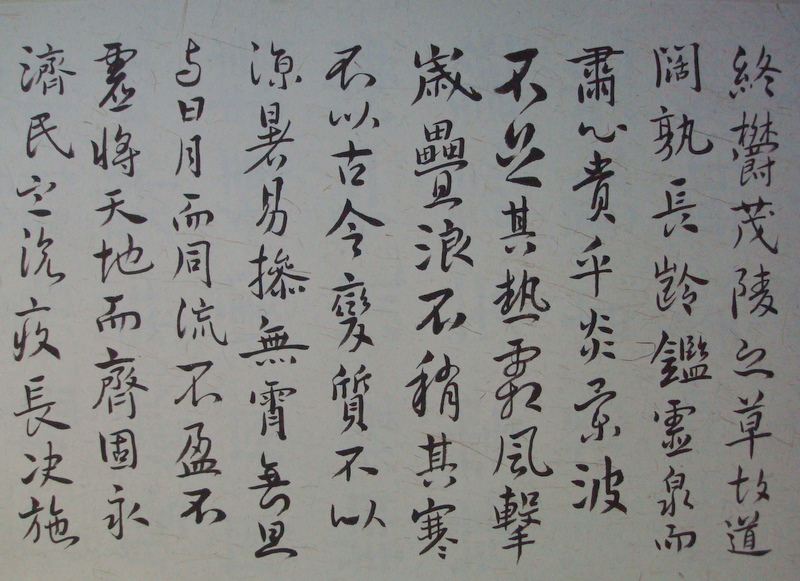 終欝茂陵之草故道
闊孰長齡鑑靈泉而
肅心貴乎炎景波
不足其熱霜風擊
歲疊浪不稍其寒
不以古今變質不以
涼暑易操無霄無旦
与日月而同流不盈不
虛將天地而齊固永
濟民之沉疾長决施